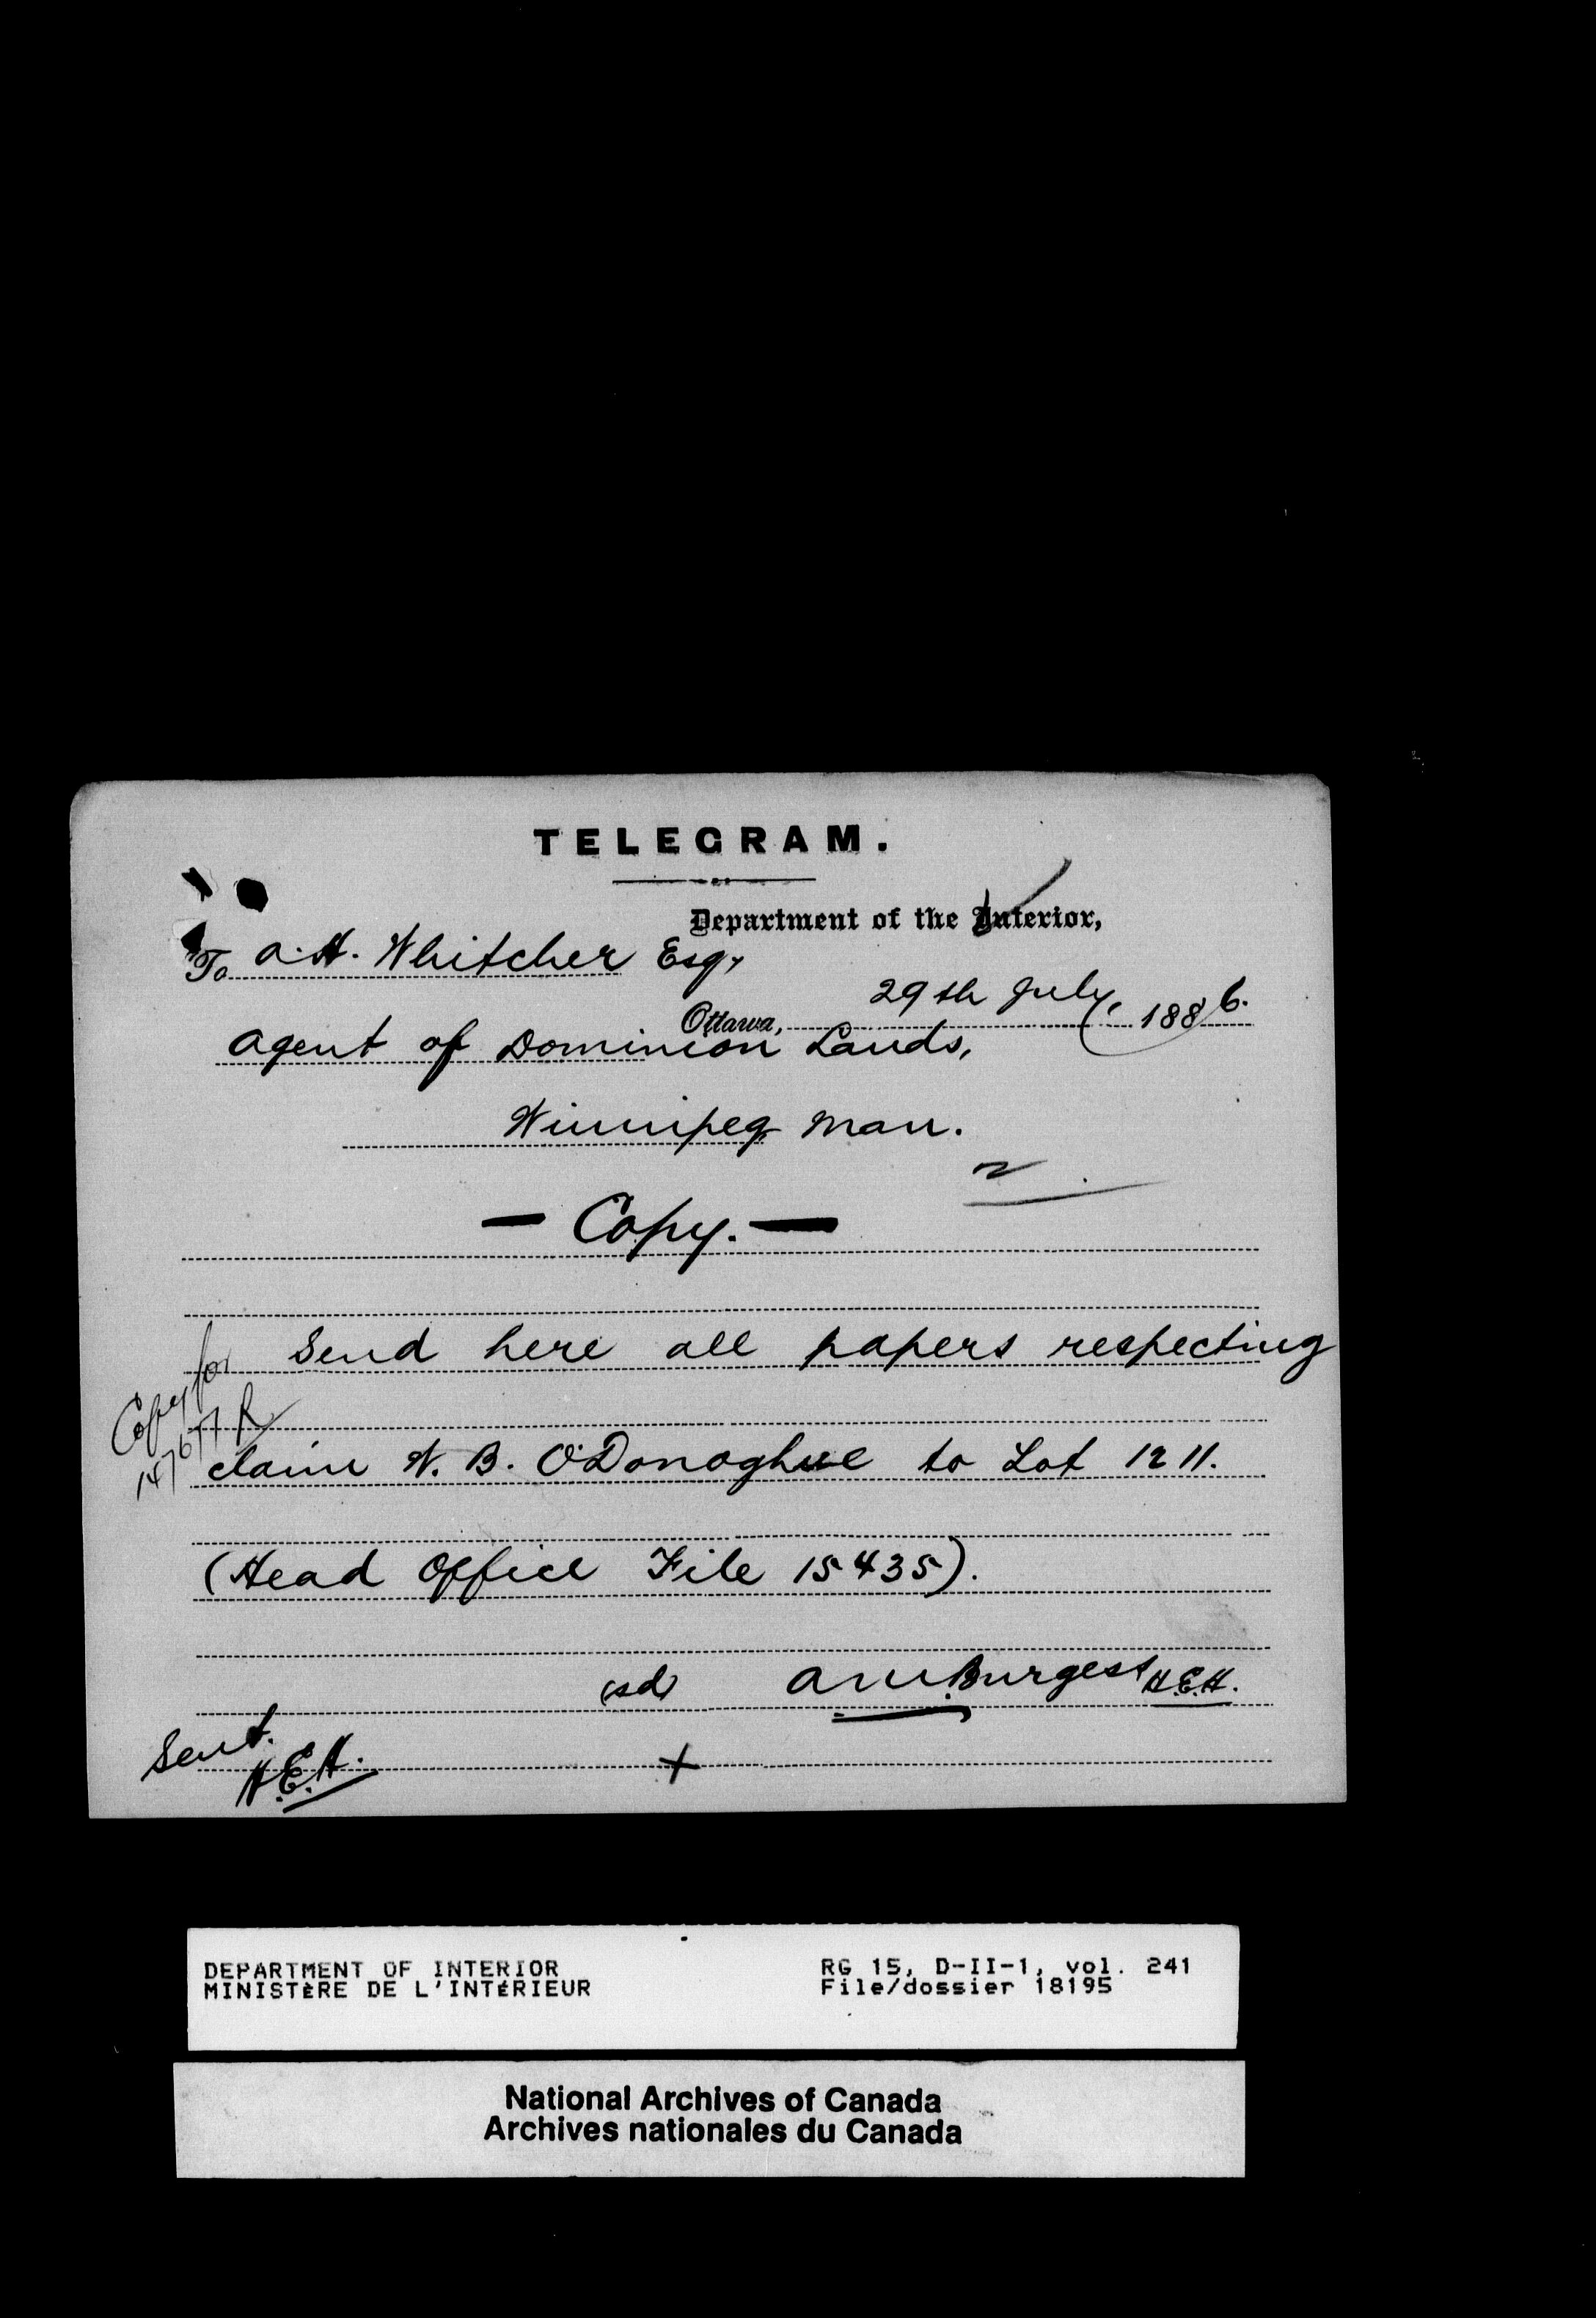 TELEGRAM.
Department of the Interior,
To A. H. Whitcher Esq.
Ottawa, 29th July, 1886.
Agent of Dominion Lands,
Winnipeg Man.
— Copy. —
Send here all papers respecting
Copy for
claim W. B. O'Donoghue to Lot 1211.
(Head Office File 15435).
(sd) A M Burgess H.E.H.
Sent.
H.E.H.
DEPARTMENT OF INTERIOR
MINISTÈRE DE L'INTÉRIEUR
RG 15, D-II-1, vol. 241
File/dossier 18195
National Archives of Canada
Archives nationales du Canada